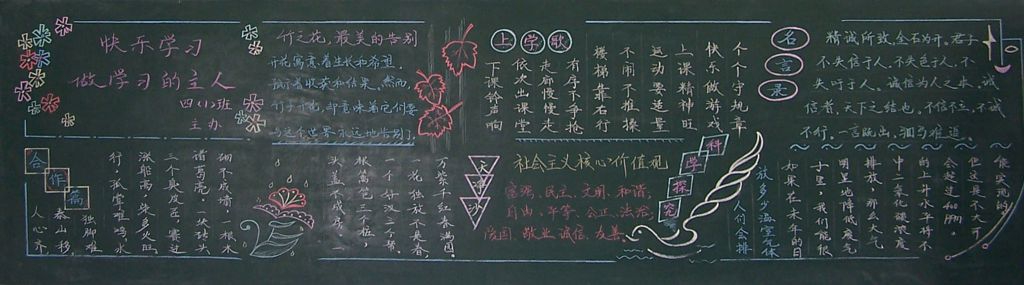 快乐学习
做学习的主人
四(1)班
主办
竹之花，最美的告别
开花寓意着生长和希望，
预示着收获和结果。然而，
竹子开花，却意味着它们要
与这个世界永远地告别了。
上学歌
个个守规章
快乐做游戏
上课精神旺
运动要适量
不闹不推操
楼梯靠右行
有序下争抢
走廊慢慢走
依次出课堂
下课铃声响
名言录
精诚所致，金石为开。君子
不失信于人，不失色于人，不
失口于人。诚信为人之本，诚
信者，天下之结也。不信不立，不诚
不行。一言既出，驷马难追。
合作篇
砌不成墙，一根木
诸葛亮，一块砖头
三个臭皮匠，赛过
涨船高，柴多火旺
行，孤掌难鸣，水
独脚难
泰山移，
人心齐，
万紫千红春满园。
一花独放不是春，
一个好汉三个帮。
根篱笆三个桩，
头盖不成房，
社会主义核心价值观
富强、民主、文明、和谐；
自由、平等、公正、法治；
爱国、敬业、诚信、友善。
科学探究
放多少海室气体
人们会排
如果在未年的日
子里，我们能很
明显地降低废气
排放，那么大气
中二氧化碳浓度
的上升水平将不
会超过400ppm，
但这是不大可
能实现的。